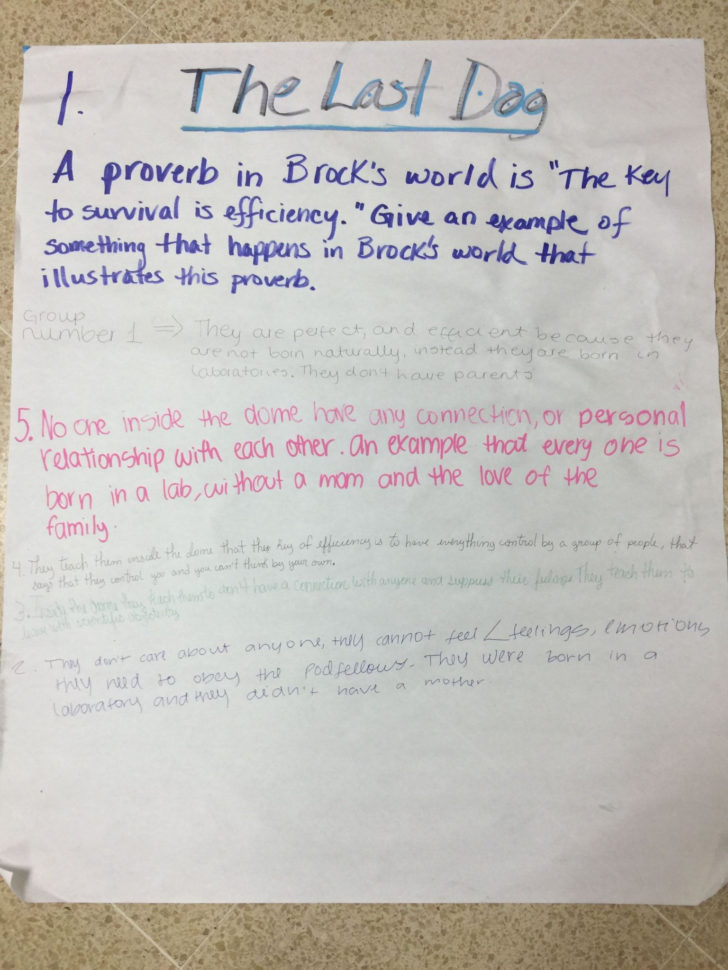 1. The Last Dog
A proverb in Brock's world is "The Key
to survival is efficiency." Give an example of
something that happens in Brock's world that
illustrates this proverb.
Group
number 1 ⇒ They are perfect, and efficient because they
are not born naturally, instead they are born in
laboratories. They dont have parents
5. No one inside the dome have any connection, or personal
relationship with each other. an example that every one is
born in a lab, without a mom and the love of the
family.
4. They teach them inside the dome that the key of efficiency is to have everything control by a group of people, that
says that they control you and you can't think by your own.
3. Inside the Dome they teach them to don't have a connection with anyone and suppress their feelings They teach them to
with scientific objectivity
2. They don't care about anyone, they cannot feel feelings, emotions
they need to obey the Podfellows. They were born in a
laboratory and they didn't have a mother.